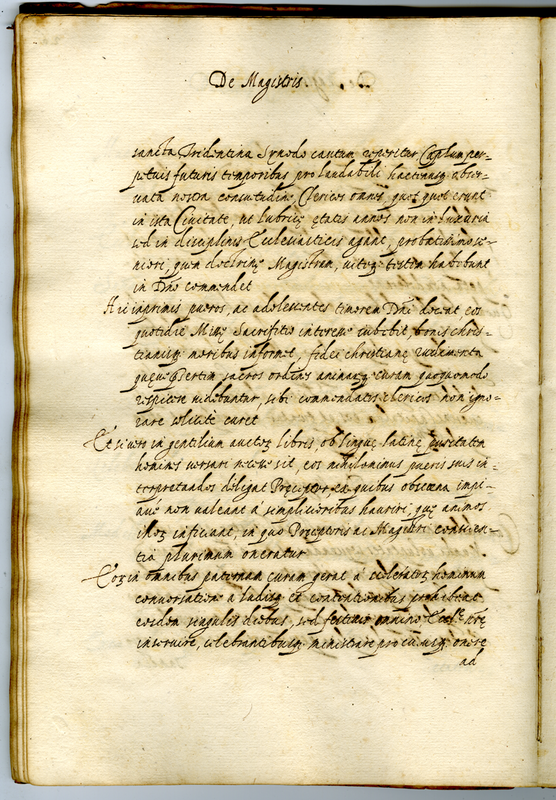 De Magistris.
sancta Tridentina Synodo cautum reperitur Caplum per-
petuis futuris temporibus pro laudabili hactenusq obser-
uata nostra consuetudine, Clericos omnes, quot quot erunt
in ista Ciuitate, ne lubricę ętatis annos non in luxuria
sed in disciplinis Ecclesiasticis agant, probatissimo se-
niori, quem doctrinę Magistrum, uitęq testem habebunt
in Dno commendet
Hic inprimis pueros, ac adolescentes timorem Dni doceat eos
quotidie Missę Sacrifitio interesse iubebit, bonis chris-
tianisq moribus informet, fidei christianę rudimenta
quęue pertim sacros ordines animarq curam quoquomodo
respicere uidebuntur, sibi commendatis clericos non igno-
rare solicite curet
Et si uero in gentilium auctorq libris, ob linguę latinę puritatem
homines uersari necesse sit, eos nihilominus pueris suis in-
terpretandos deligat Pręceptor ex quibus obscena impi-
aue non ualeant à simplicioribus hauriri, quę animos
illorq inficiant, in quo Pręceptoris ac Magistri conscien-
tia plurimum oneratur
Eorq in omnibus paternam curam gerat à sceleratorq hominum
conuersatione a ludisq et contentionibus prohibeat
eosdem singulis diebus, sed festiuis omnino Eccle nrę
inseruire, celebrantibusq ministrare pro cuiusq onere
ad